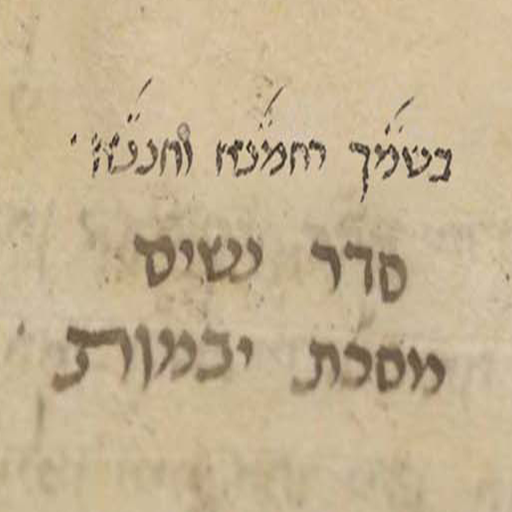 בשמך רחמנא וחננא
סדר נשים
מסכת יבמות